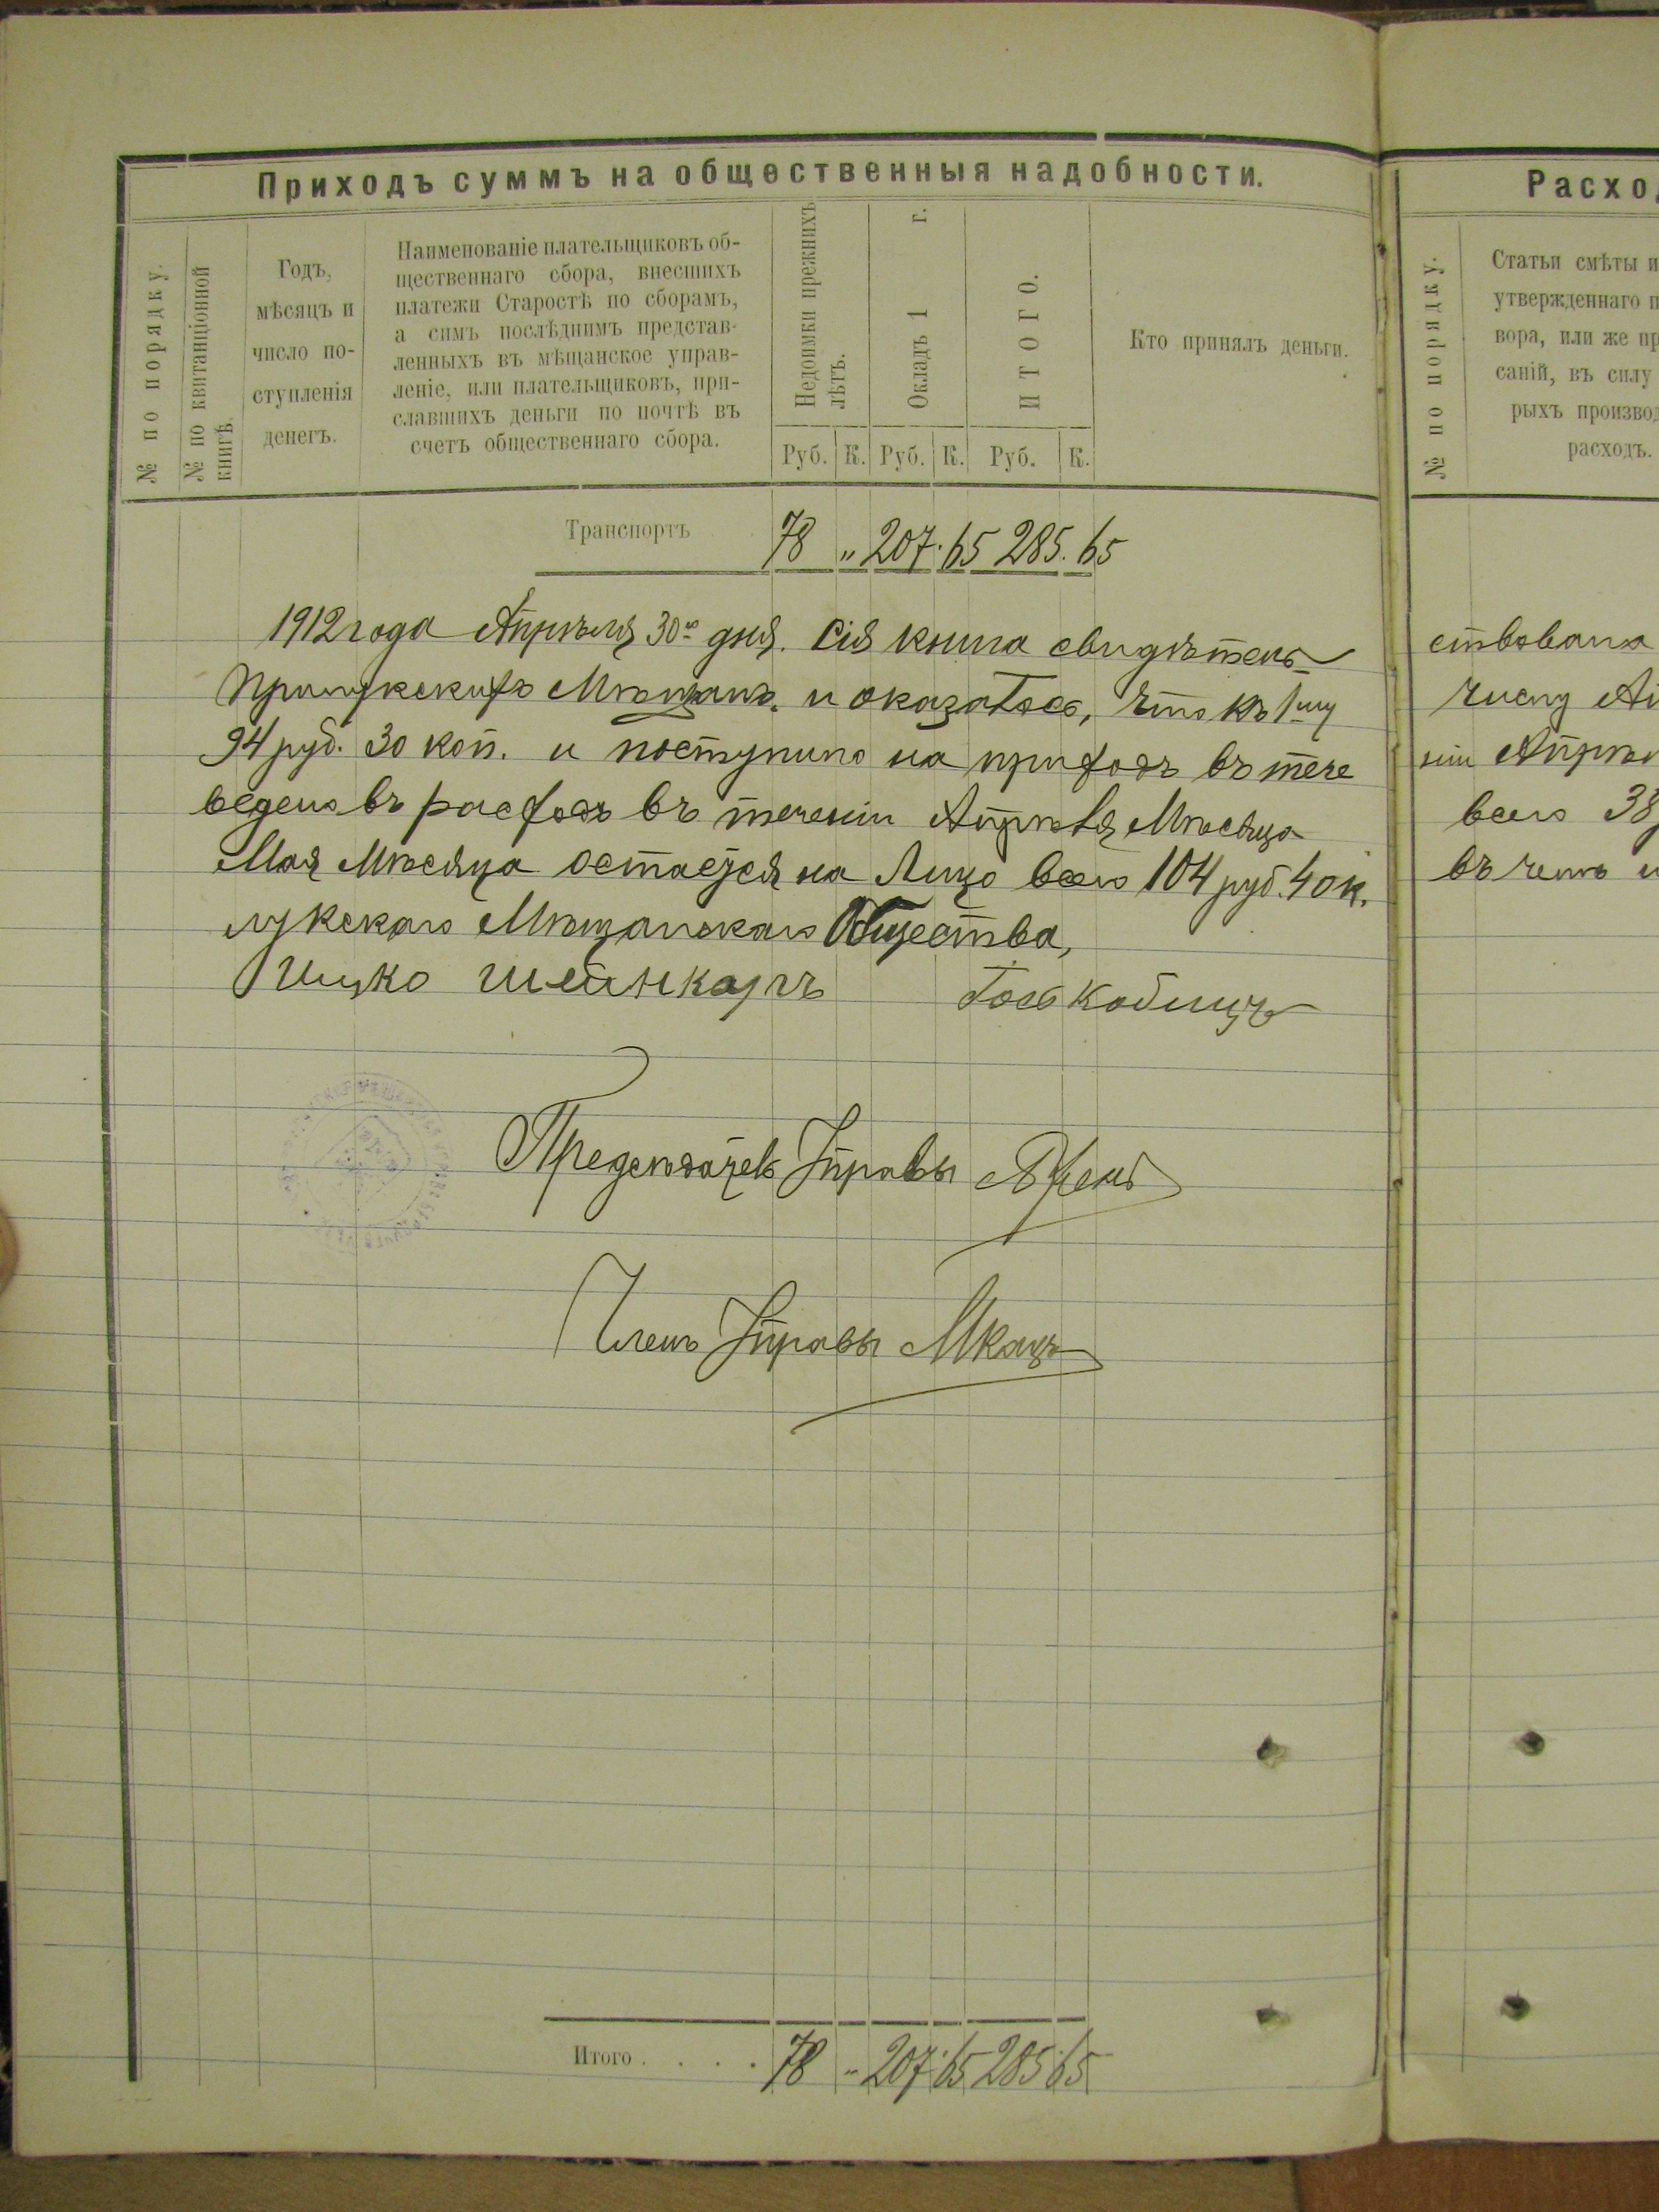 Приходъ суммъ на общественныя надобности.
№ по порядку.
№ по квитанціонной
книгѣ.
Годъ,
мѣсяцъ и
число по-
ступленія
денегъ.
Наименованіе плательщиковъ об-
щественнаго сбора, внесшихъ
платежи Старостѣ по сборамъ,
а симъ послѣднимъ представ-
ленныхъ въ мѣщанское управ-
леніе, или плательщиковъ, при-
славшихъ деньги по почтѣ въ
счетъ общественнаго сбора.
Недоимки прежнихъ
лѣтъ.
Окладъ 1 г.
ИТОГО.
Кто принялъ деньги.
Руб. К. Руб. К. Руб. К.
Транспортъ 78 " 207. 65 285. 65
1912 года Апрѣля 30го дня. Сія книга свидѣтель
Прилукскихъ Мѣщанъ, и оказалось, что къ 1му
94 руб. 30 коп. и поступило на приходъ въ тече
ведено въ расходъ въ теченіи Апрѣля Мѣсяца
Мая Мѣсяца остается на Лицо всего 104 руб. 40 к.
лукскаго Мѣщанскаго Общества,
Ицко Шейнкаръ
Предсѣдатель Управы
Членъ Управы МКацъ
Итого . . . . 78 " 207. 65 285 65
Расход
№ по порядку.
Статьи смѣты и
утвержденнаго п
вора, или же пр
саній, въ силу
рыхъ производ
расходъ.
ствована
числу Ап
ніи Апрѣл
всего 38
въ чемъ и